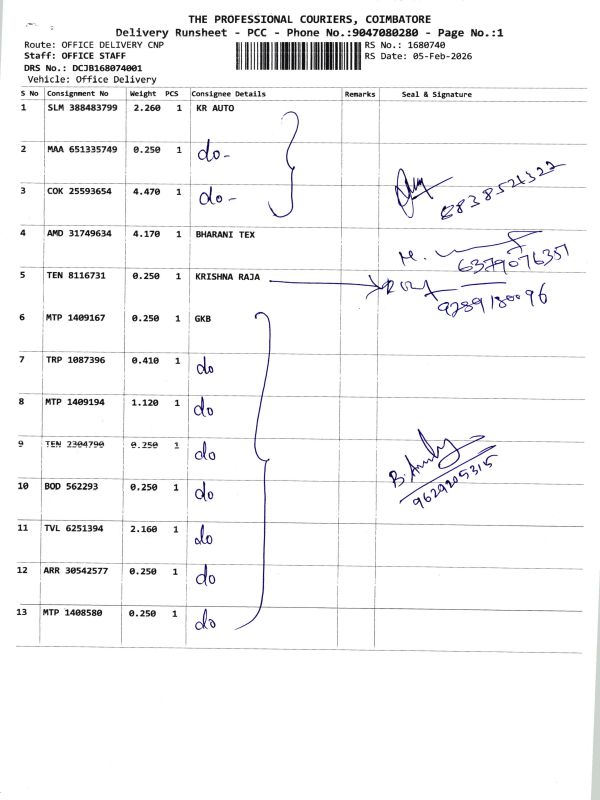 THE PROFESSIONAL COURIERS, COIMBATORE
Delivery Runsheet - PCC - Phone No.:9047080280 - Page No.:1
Route: OFFICE DELIVERY CNP
RS No.: 1680740
Staff: OFFICE STAFF
RS Date: 05-Feb-2026
DRS No.: DCJB168074001
Vehicle: Office Delivery
S No Consignment No Weight PCS Consignee Details Remarks Seal & Signature
1 SLM 388483799 2.260 1 KR AUTO
2 MAA 651335749 0.250 1 do-
3 COK 25593654 4.470 1 do-
8838521322
4 AMD 31749634 4.170 1 BHARANI TEX
6379076357
5 TEN 8116731 0.250 1 KRISHNA RAJA
9289180096
6 MTP 1409167 0.250 1 GKB
7 TRP 1087396 0.410 1 do
8 MTP 1409194 1.120 1 do
9 TEN 2304790 0.250 1 do
10 BOD 562293 0.250 1 do
9629205315
11 TVL 6251394 2.160 1 do
12 ARR 30542577 0.250 1 do
13 MTP 1408580 0.250 1 do